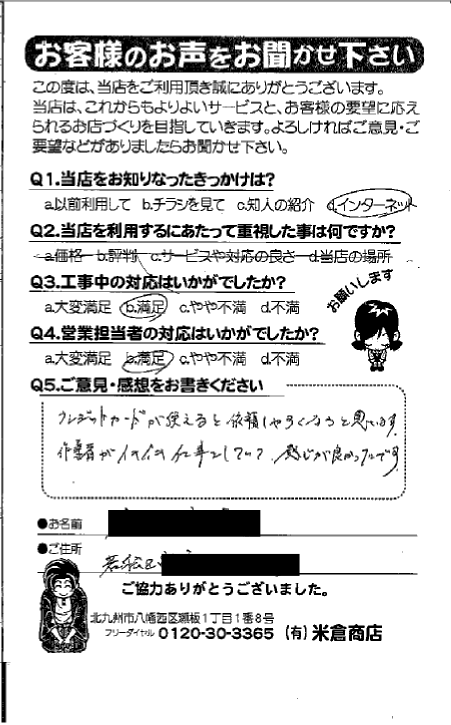 お客様のお声をお聞かせ下さい
この度は、当店をご利用頂き誠にありがとうございます。
当店は、これからもよりよいサービスと、お客様の要望に応え
られるお店づくりを目指していきます。よろしければご意見・ご
要望などがありましたらお聞かせ下さい。
Q1.当店をお知りなったきっかけは?
a.以前利用して b.チラシを見て c.知人の紹介 d.インターネット
Q2.当店を利用するにあたって重視した事は何ですか?
a.価格 b.評判 c.サービスや対応の良さ d.当店の場所
Q3.工事中の対応はいかがでしたか?
お願いします
a.大変満足 b.満足 c.やや不満 d.不満
Q4.営業担当者の対応はいかがでしたか?
a.大変満足 b.満足 c.やや不満 d.不満
Q5.ご意見・感想をお書きください
クレジットカードが使えると依頼しやすくなると思います
作業者がイキイキ仕事をしていて、感じが良かったです
●お名前
●ご住所
若松区
ご協力ありがとうございました。
北九州市八幡西区瀬板1丁目1番8号
フリーダイヤル 0120-30-3365 (有)米倉商店